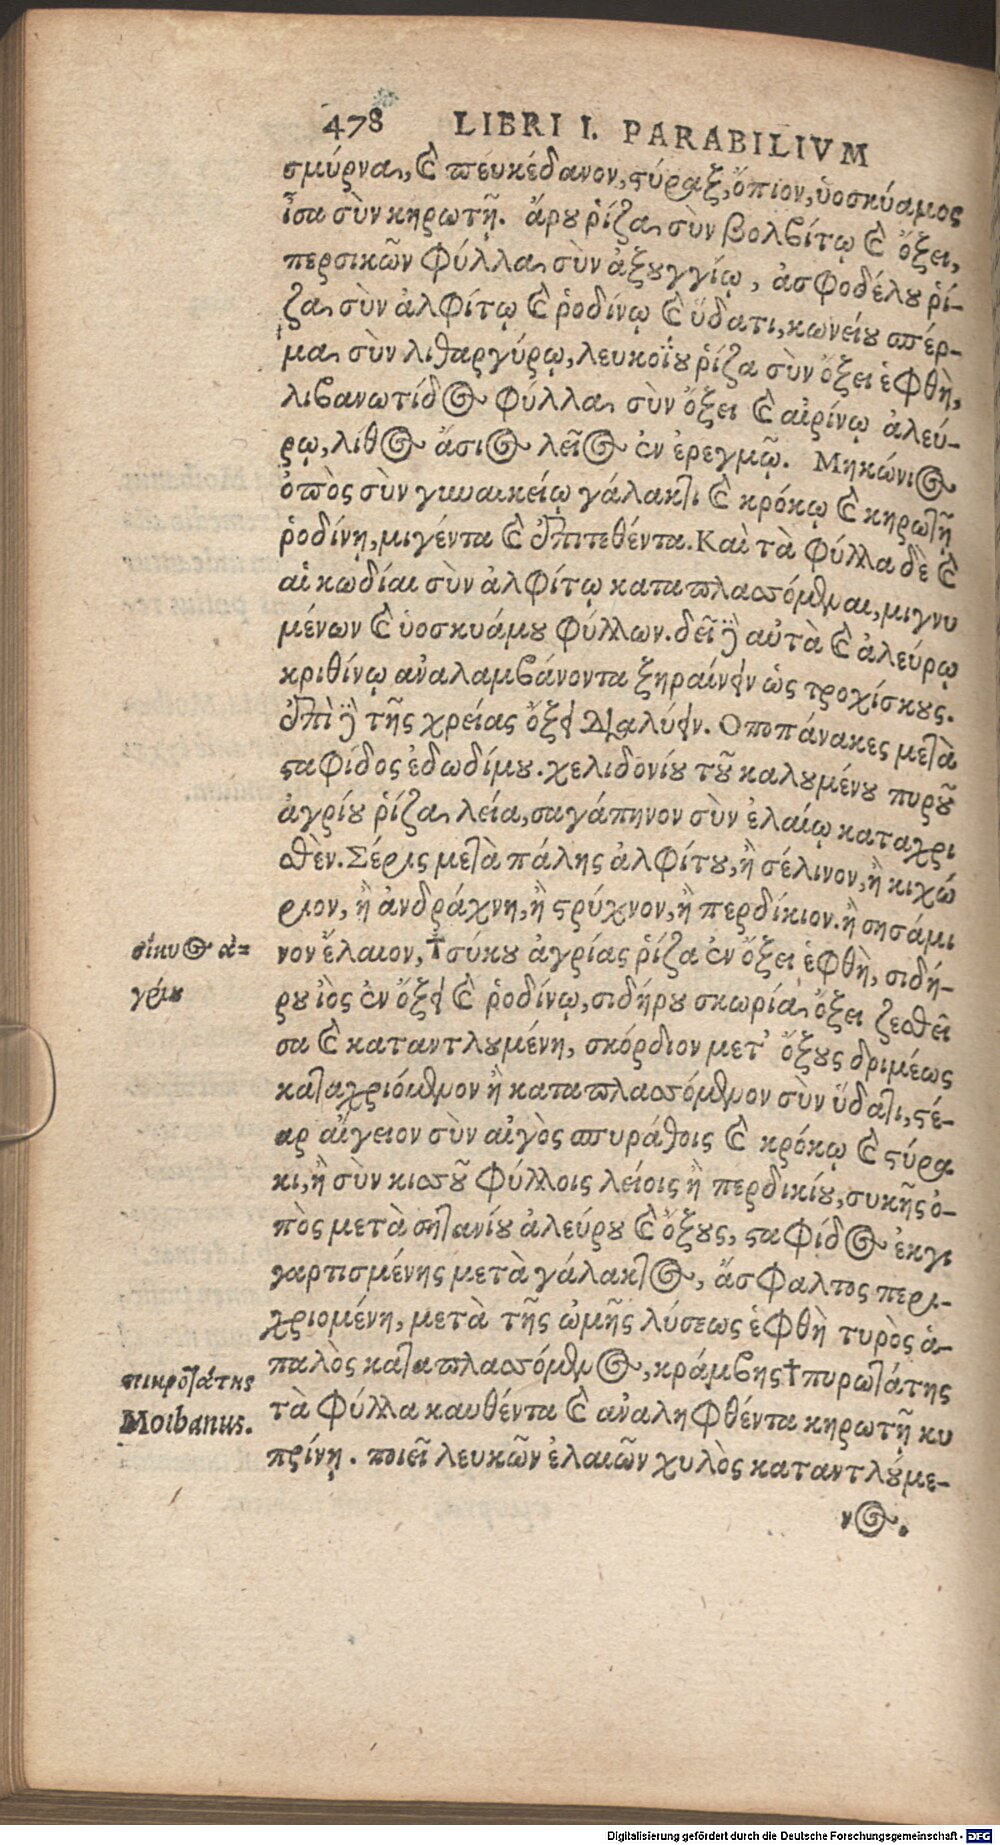 478 LIBRI I. PARABILIVM
σμύρνα, καὶ πευκέδανον, στύραξ, ὄπιον, ὑοσκύαμος
ἶσα σὺν κηρωτῇ. ἄρου ῥίζα, σὺν βολβίτῳ καὶ ὄξει,
περσικῶν φύλλα, σὺν ἀξουγγίῳ, ἀσφοδέλου ῥί-
ζα, σὺν ἀλφίτῳ καὶ ῥοδίνῳ καὶ ὕδατι, κωνείου σπέρ-
μα, σὺν λιθαργύρῳ, λευκοΐου ῥίζα σὺν ὄξει ἑφθὴ,
λιβανωτίδος φύλλα, σὺν ὄξει καὶ αἰρίνῳ ἀλεύ-
ρῳ, λίθος ἄσιος λεῖος ἐν ἐρεγμῷ. Μηκώνιος
ὀπὸς σὺν γυναικείῳ γάλακτι καὶ κρόκῳ καὶ κηρωτῇ
ῥοδίνῃ, μιγέντα καὶ ἐπιτεθέντα. Καὶ τὰ φύλλα δὲ καὶ
αἱ κωδίαι σὺν ἀλφίτῳ καταπλασσόμεναι, μιγνυ
μένων καὶ ὑοσκυάμου φύλλων. δεῖ γὰρ αὐτὰ καὶ ἀλεύρῳ
κριθίνῳ ἀναλαμβάνοντα ξηραίνειν ὡς τροχίσκους.
ἐπὶ γὰρ τῆς χρείας ὄξει διαλύειν. Οποπάνακες μετὰ
σταφίδος ἐδωδίμου. χελιδονίου τοῦ καλουμένου πυροῦ
ἀγρίου ῥίζα, λεία, σαγάπηνον σὺν ἐλαίῳ καταχρι
σθέν. Σέρις μετὰ πάλης ἀλφίτου, ἢ σέλινον, ἢ κιχώ
ριον, ἢ ἀνδράχνη, ἢ στρύχνον, ἢ περδίκιον. ἢ σησάμι
νον ἔλαιον, †σύκου ἀγρίας ῥίζα ἐν ὄξει ἑφθὴ, σιδή-
σίκυος ἀ=
γρίου
ρου ἰὸς ἐν ὄξει καὶ ῥοδίνῳ, σιδήρου σκωρία, ὄξει ζεσθεῖ
σα καὶ καταντλουμένη, σκόρδιον μετ' ὄξους δριμέως
καταχριόμενον ἢ καταπλασσόμενον σὺν ὕδατι, στέ-
αρ αἴγειον σὺν αἰγὸς σπυράθοις καὶ κρόκῳ καὶ στύρα
κι, ἢ σὺν κισσοῦ φύλλοις λείοις ἢ περδικίου, συκῆς ὀ-
πὸς μετὰ σητανίου ἀλεύρου καὶ ὄξους, σταφίδος ἐκγι
γαρτισμένης μετὰ γάλακτος, ἄσφαλτος περι-
χριομένη, μετὰ τῆς ὠμῆς λύσεως ἑφθὴ τυρὸς ἁ-
παλὸς καταπλασσόμενος, κράμβης †πυρωτάτης
πικροτάτης
Moibanus.
τὰ φύλλα καυθέντα καὶ ἀναληφθέντα κηρωτῇ κυ
πρίνῃ. ποιεῖ λευκῶν ἐλαιῶν χυλὸς καταντλούμε-
νος.
Digitalisierung gefördert durch die Deutsche Forschungsgemeinschaft - DFG